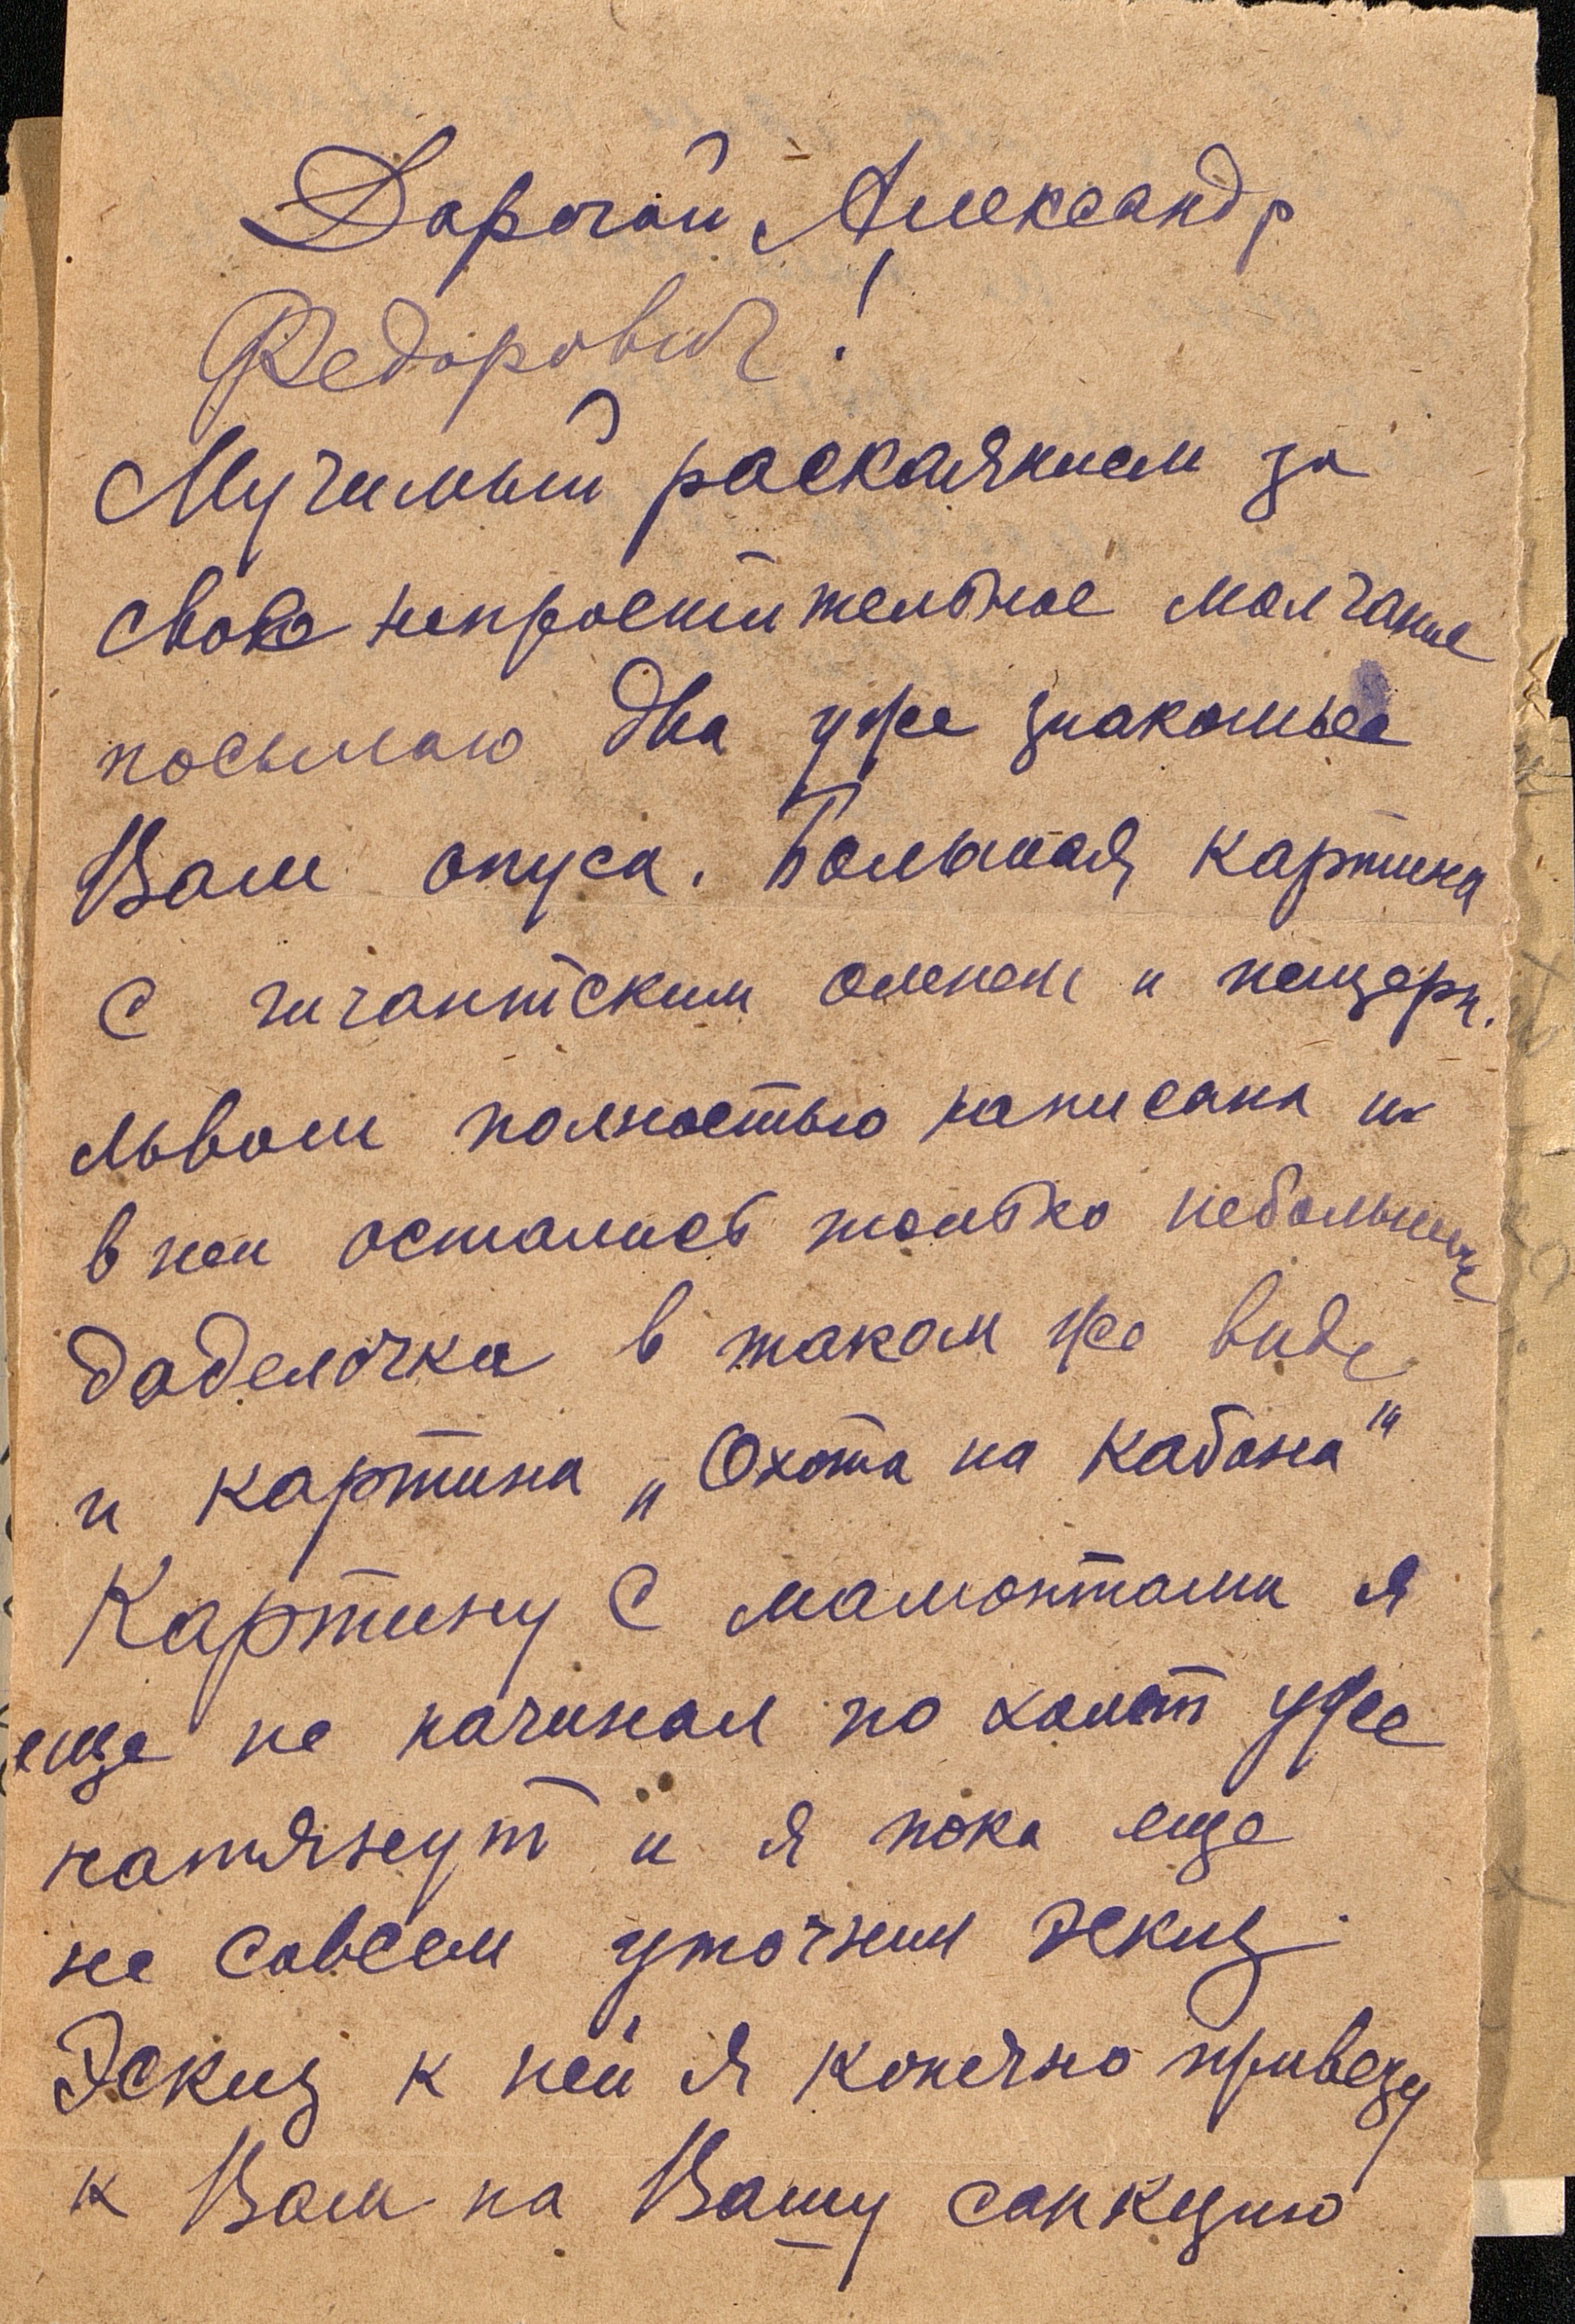 Дорогой Александр
Федорович!
Мучимый раскаянием за
свое непростительное молчание
посылаю два уже знакомых
Вам опуса. Большая картина
с гигантским оленем и пещерн.
львом полностью написана и
в ней остались только небольшие
доделочки в таком же виде
и картина „Охота на кабана"
Картину с мамонтами я
еще не начинал но холст уже
натянут и я пока еще
не совсем уточнил эскиз.
Эскиз к ней я конечно привезу
к Вам на Вашу санкцию